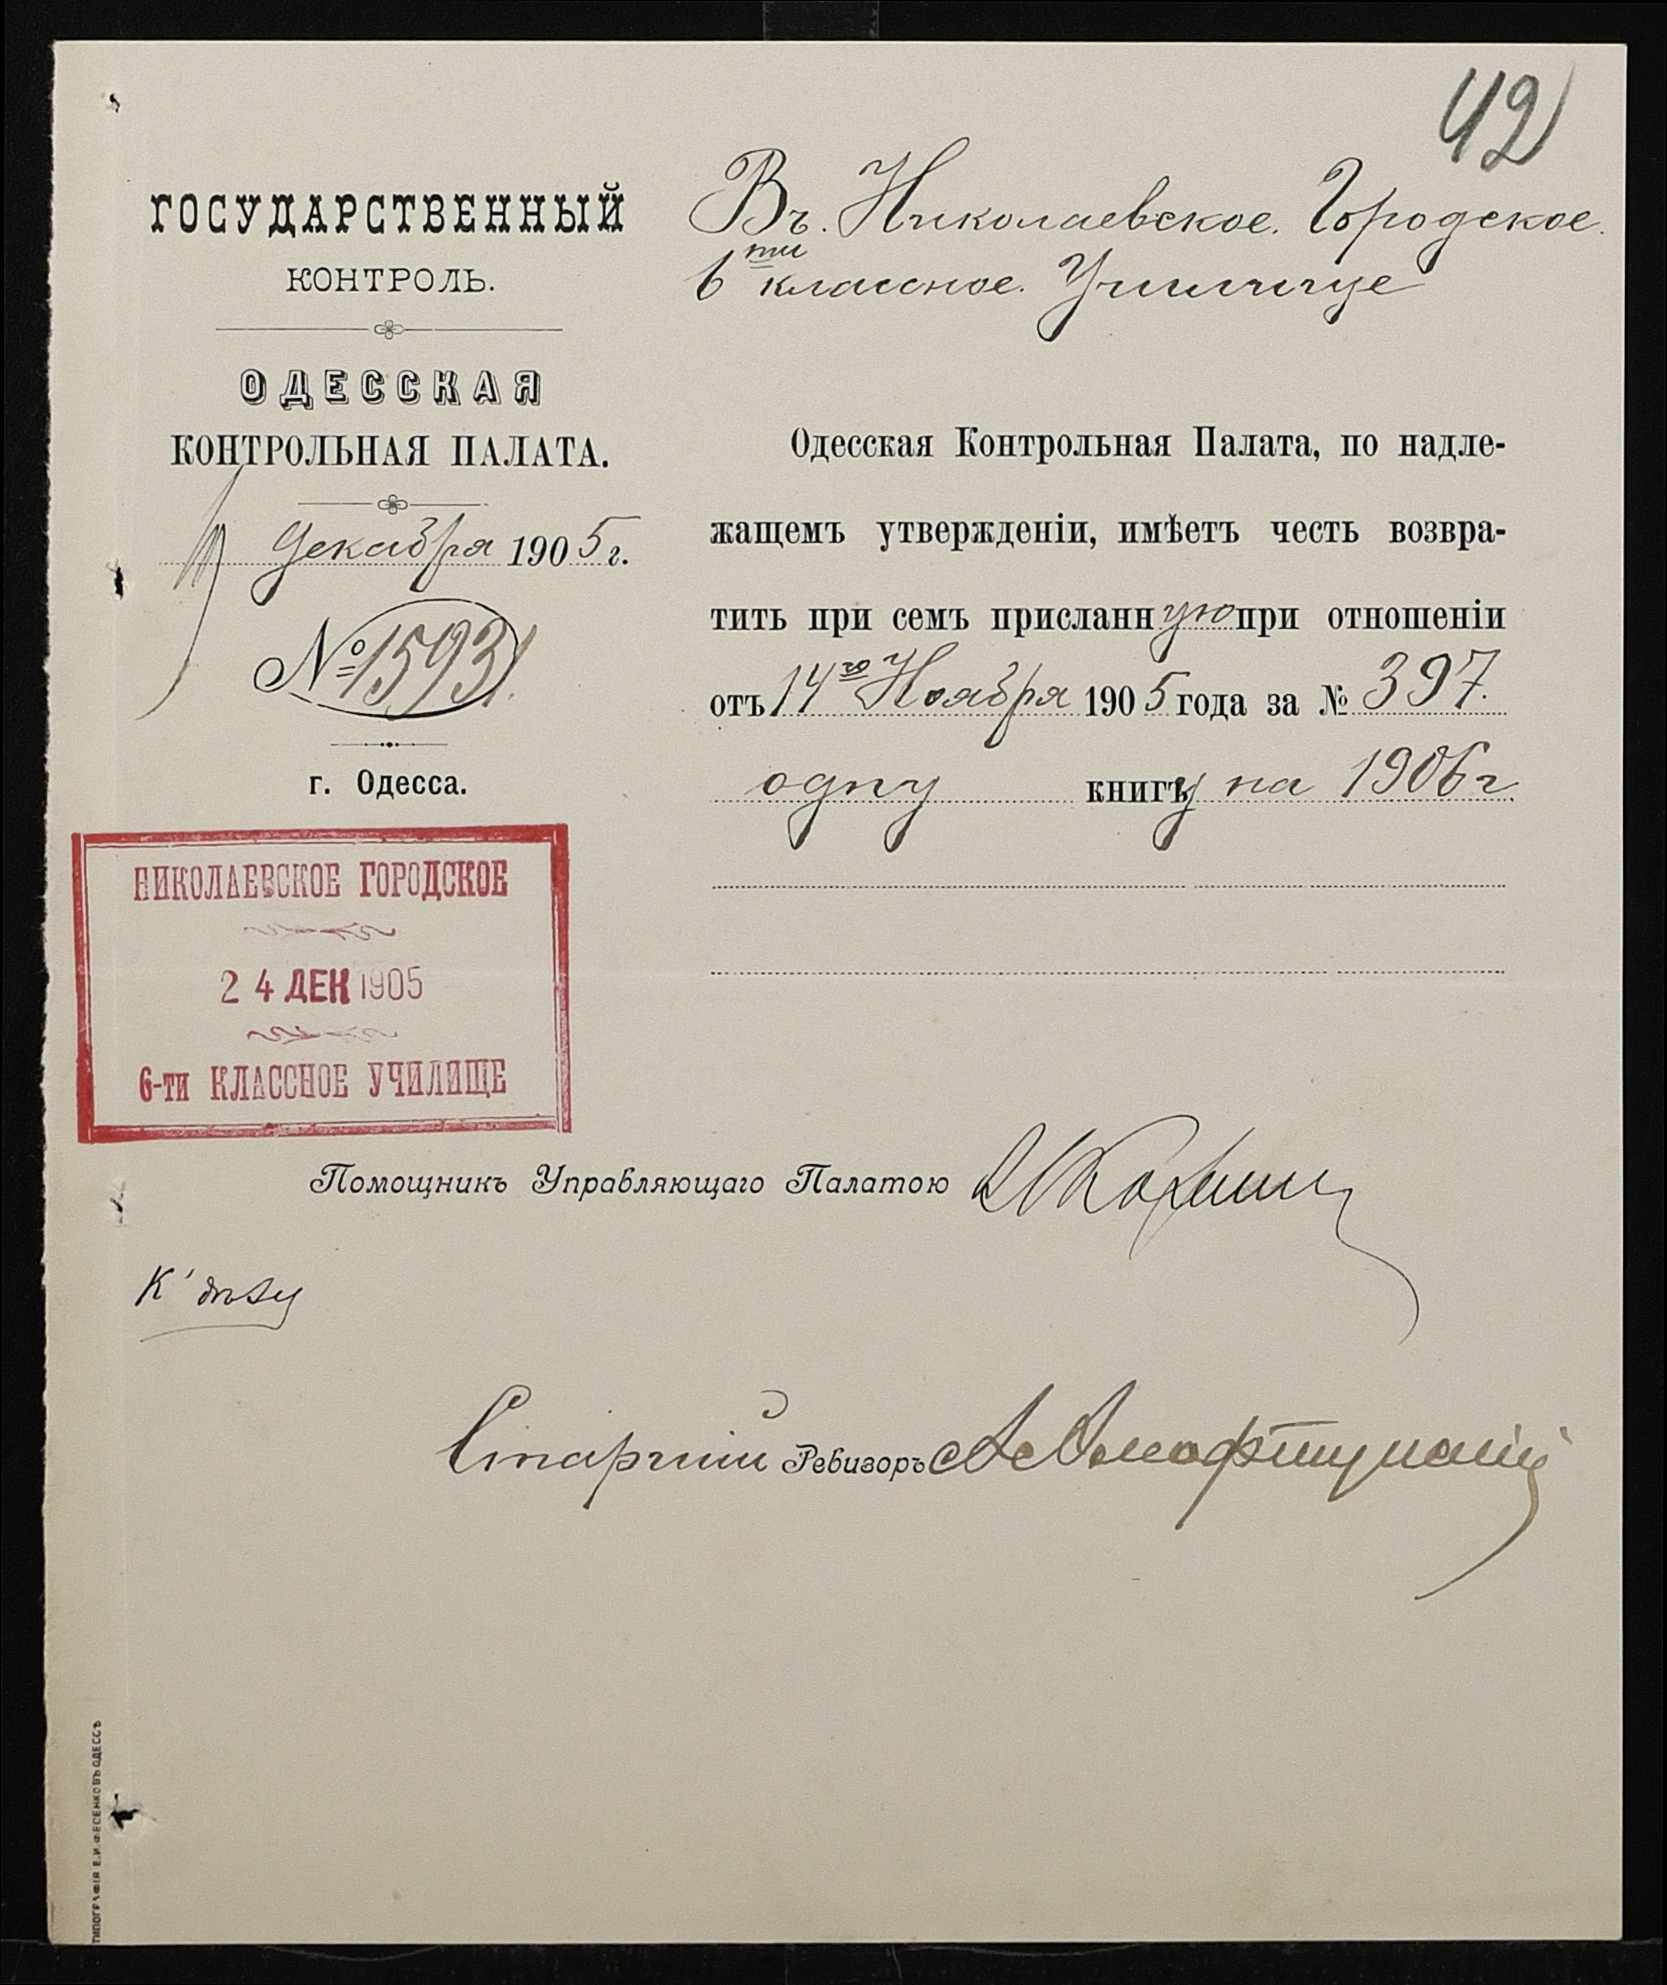 42
ГОСУДАРСТВЕННЫЙ
КОНТРОЛЬ.
ОДЕССКАЯ
КОНТРОЛЬНАЯ ПАЛАТА.
Декабря 1905 г.
№ 15931
г. Одесса.
НИКОЛАЕВСКОЕ ГОРОДСКОЕ
24 ДЕК 1905
6-ти КЛАССНОЕ УЧИЛИЩЕ
Въ Николаевское Городское
6ти классное Училище
Одесская Контрольная Палата, по надле-
жащемъ утвержденіи, имѣетъ честь возвра-
тить при семъ присланную при отношеніи
отъ 14го Ноября 1905 года за № 397.
одну книгу на 1906 г.
Помощникъ Управляющаго Палатою
К' дѣлу
Старшій Ревизоръ
ТИПОГРАФІЯ Е.И.ФЕСЕНКО ВЪ ОДЕССѢ